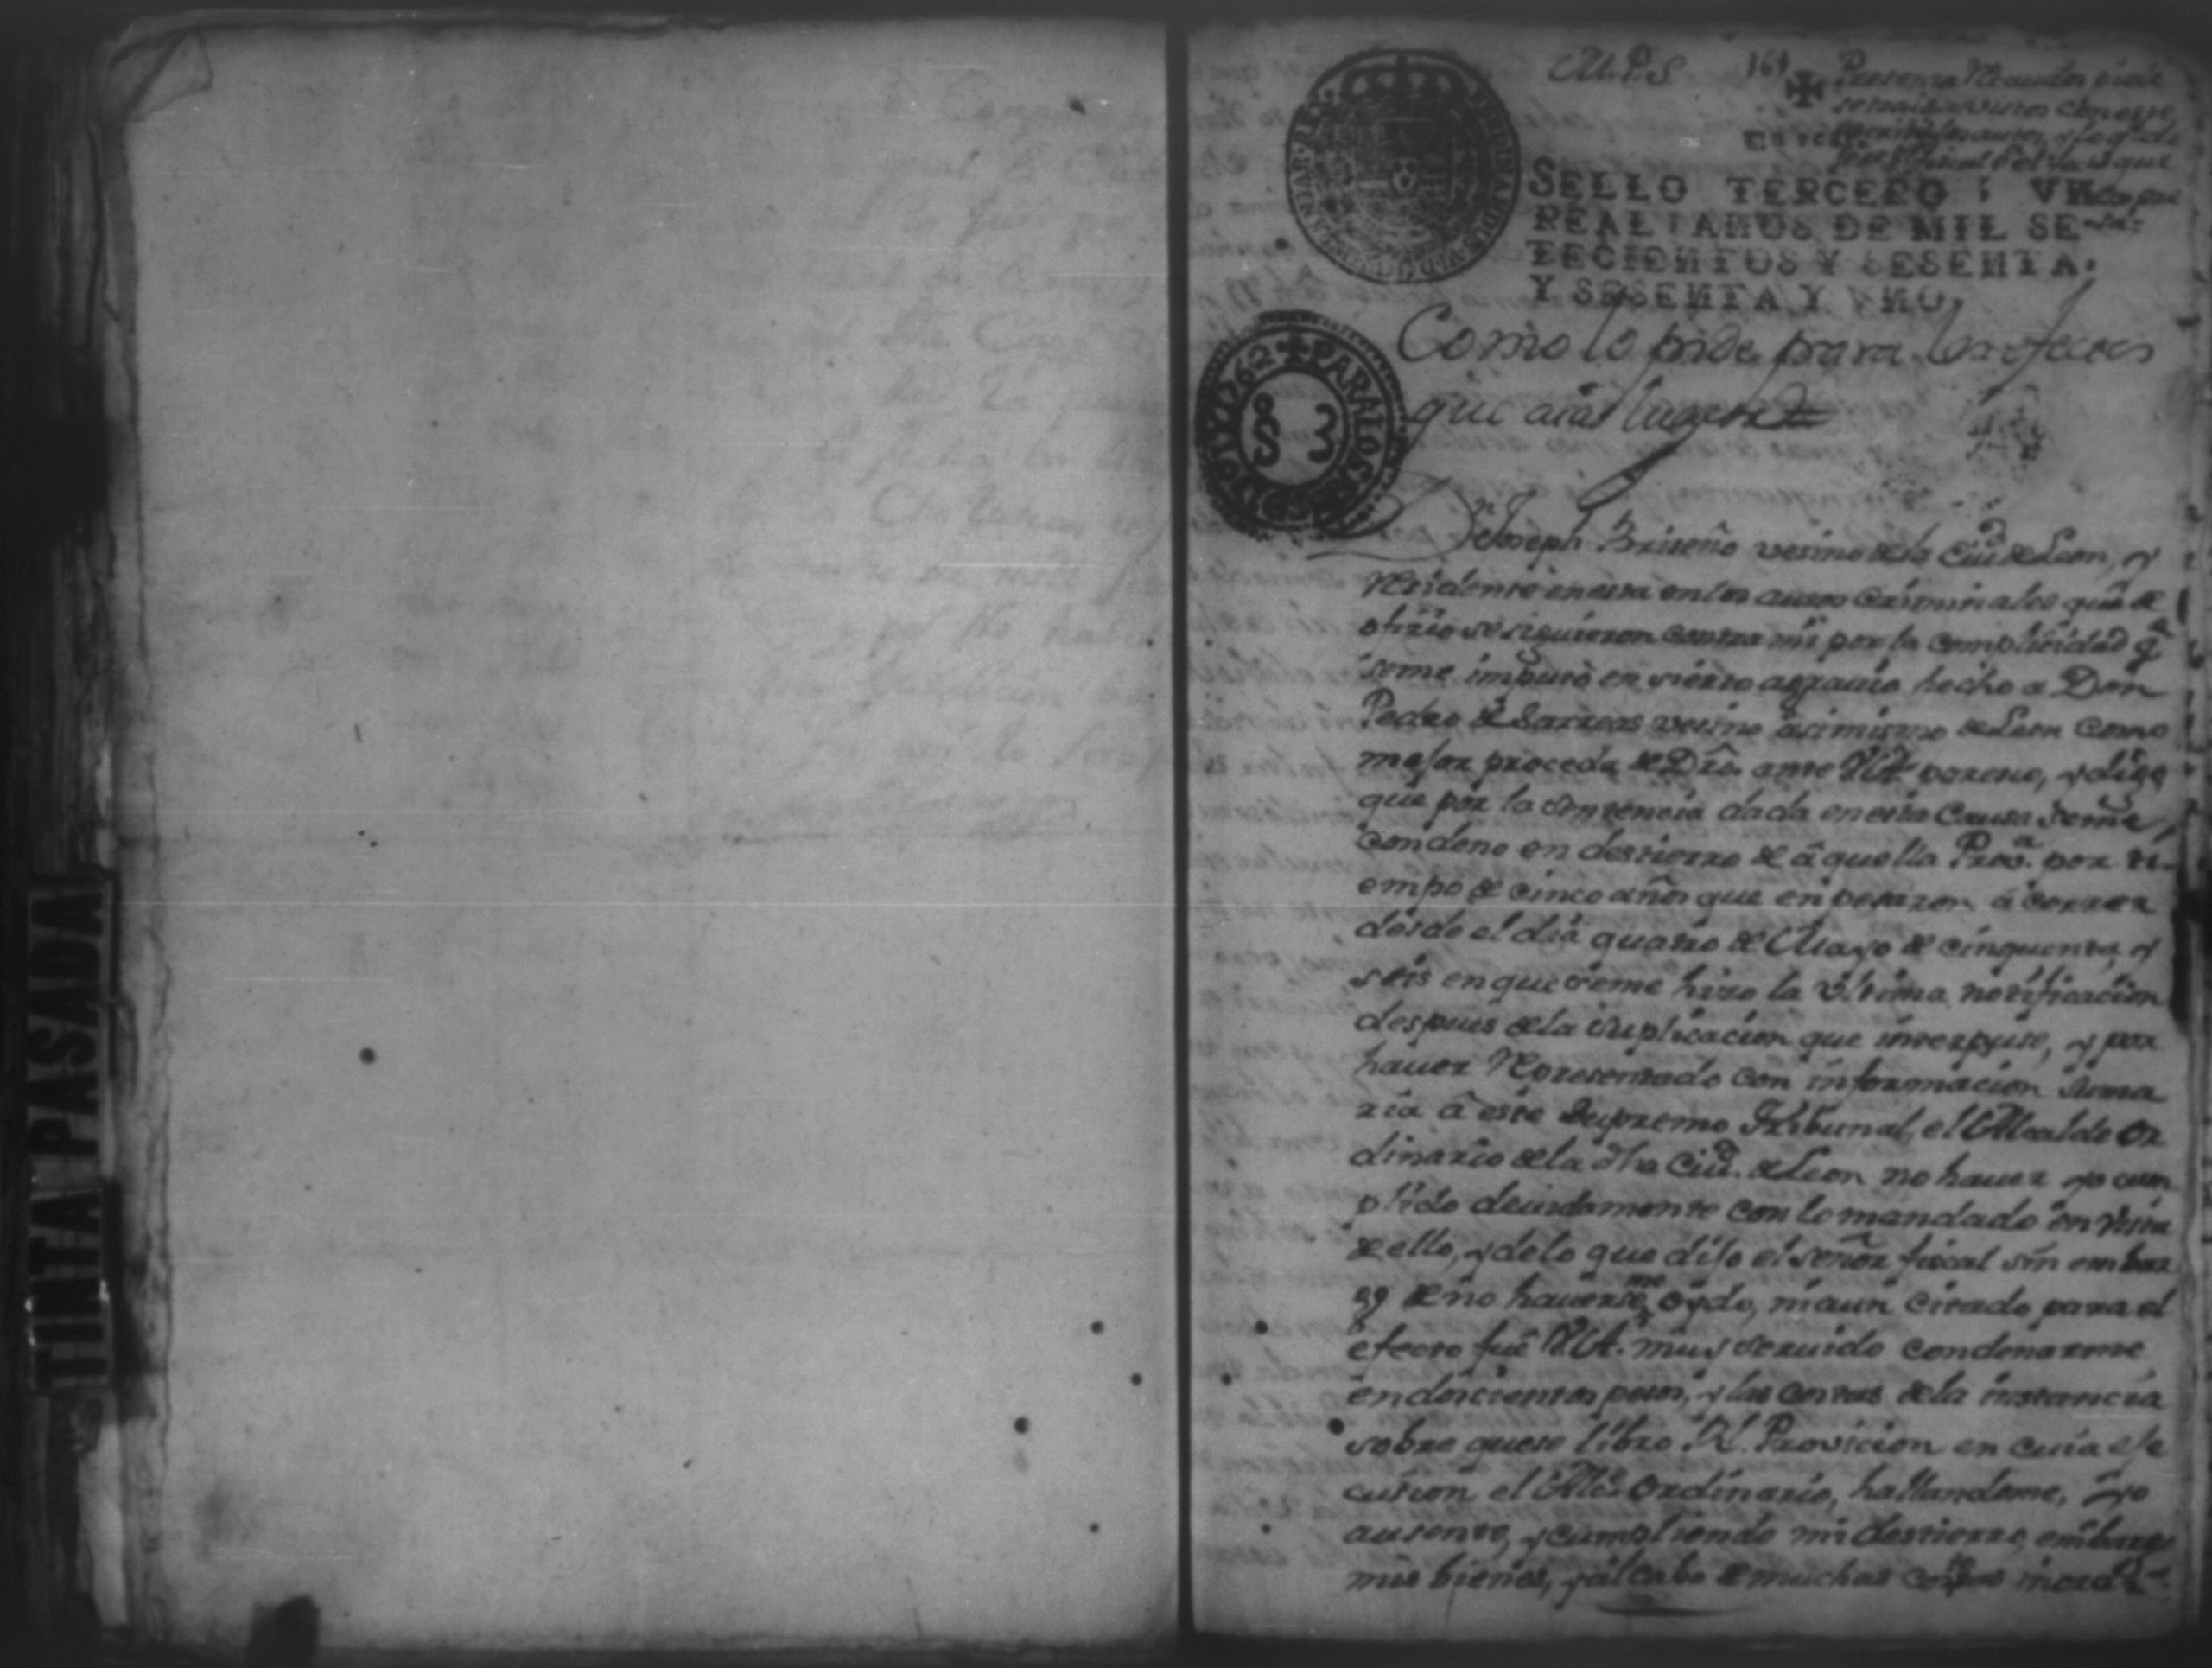 M.P.S
161
SELLO TERCERO, VN
REAL, AÑOS DE MIL SE-
TECIENTOS Y SESENTA,
Y SESENTA Y VNO.
PARA LOS 1762 Y
S 3
Como lo pide para los efectos
que aia lugar
Dn Joseph Briseño vesino de la Ciud de Leon, y
residente en esta en los autos criminales que de
ofizio se siguieron contra mi por la complicidad q̃
se me imputó en sierto agrauio hecho a Don
Pedro de Sarrias vesino asimismo de Leon como
mejor proceda de Dro. ante V.A. paresco, y digo
que por la sentencia dada en esta Causa se me
condeno en destierro de aquella Prova. por ti-
empo de cinco años que enpesaron á correr
desde el dia quatro de Mayo de cinquenta, y
seis en que se me hizo la vltima notificacion
despues de la suplicacion que interpuse, y por
hauer Representado con informacion suma
ria a este Supremo Tribunal, el Alcalde Or
dinario de la dha Ciud. de Leon no hauer yo cum
plido deuidamente con lo mandado en vista
de ello, y de lo que dijo el señor fiscal sin embar
go de no hauerseme oydo, ni aun citado para el
efecto fue V.A. muy seruido condenarme
en doscientos pesos, y las costas de la instancia
sobre que se libro Rl. Provicion en cuia eje
cusion el Alce. Ordinario, hallandome, yo
ausente, y cumpliendo mi destierro, embargo
mis bienes, y al cabo de muchas
TINTA PASADA